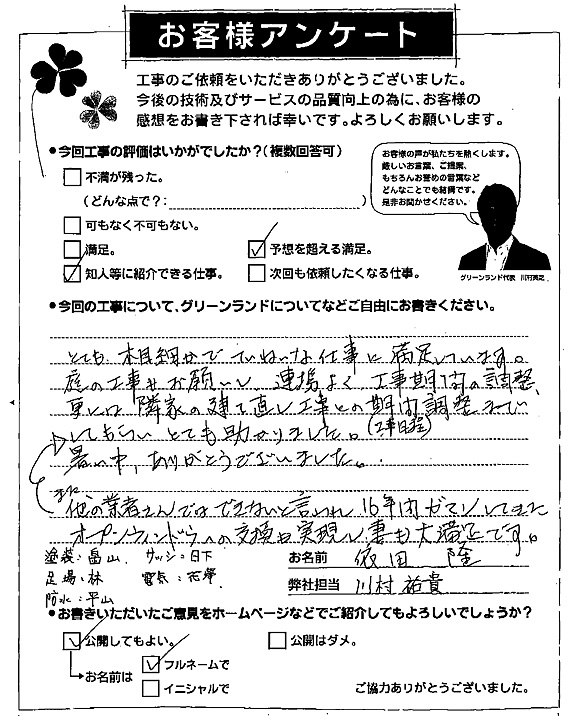 お客様アンケート
工事のご依頼をいただきありがとうございました。
今後の技術及びサービスの品質向上の為に、お客様の
感想をお書き下されば幸いです。よろしくお願いします。
●今回工事の評価はいかがでしたか?(複数回答可)
不満が残った。
(どんな点で?: )
可もなく不可もない。
満足。
予想を超える満足。
知人等に紹介できる仕事。
次回も依頼したくなる仕事。
お客様の声が私たちを熱くします。
厳しいお言葉、ご提案、
もちろんお誉めの言葉など
どんなことでも結構です。
是非お聞かせください。
グリーンランド代表 川村
●今回の工事について、グリーンランドについてなどご自由にお書きください。
とても木目細かで ていねいな仕事に 満足しています。
庭の工事もお願いし、連携よく 工事期間の調整、
更には 隣家の建て直し工事との期間調整まで
(工事日程)
してもらい とても助かりました。
暑い中、ありがとうございました。
また
他の業者さんではできないと言われ 16年間ガマンしてきた
オープンウィンドウへの交換も実現し妻も大満足です。
塗装:畠山 サッシ:日下
足場:林 電気:
防水:平山
お名前 依田 隆
弊社担当 川村 祐貴
●お書きいただいたご意見をホームページなどでご紹介してもよろしいでしょうか?
公開してもよい。
公開はダメ。
お名前は
フルネームで
イニシャルで
ご協力ありがとうございました。